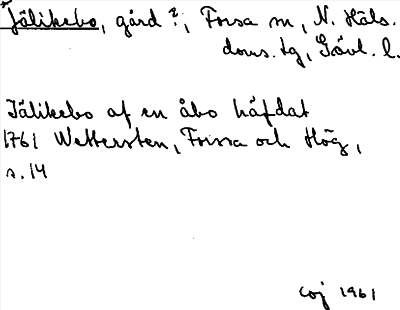 Jälikebo, gård?, Forsa sn, N. Häls.
doms. tg, Gävl. l.
Jälikebo af en åbo häfdat
1761 Wettersten, Forssa och Hög,
s. 14
COJ 1961